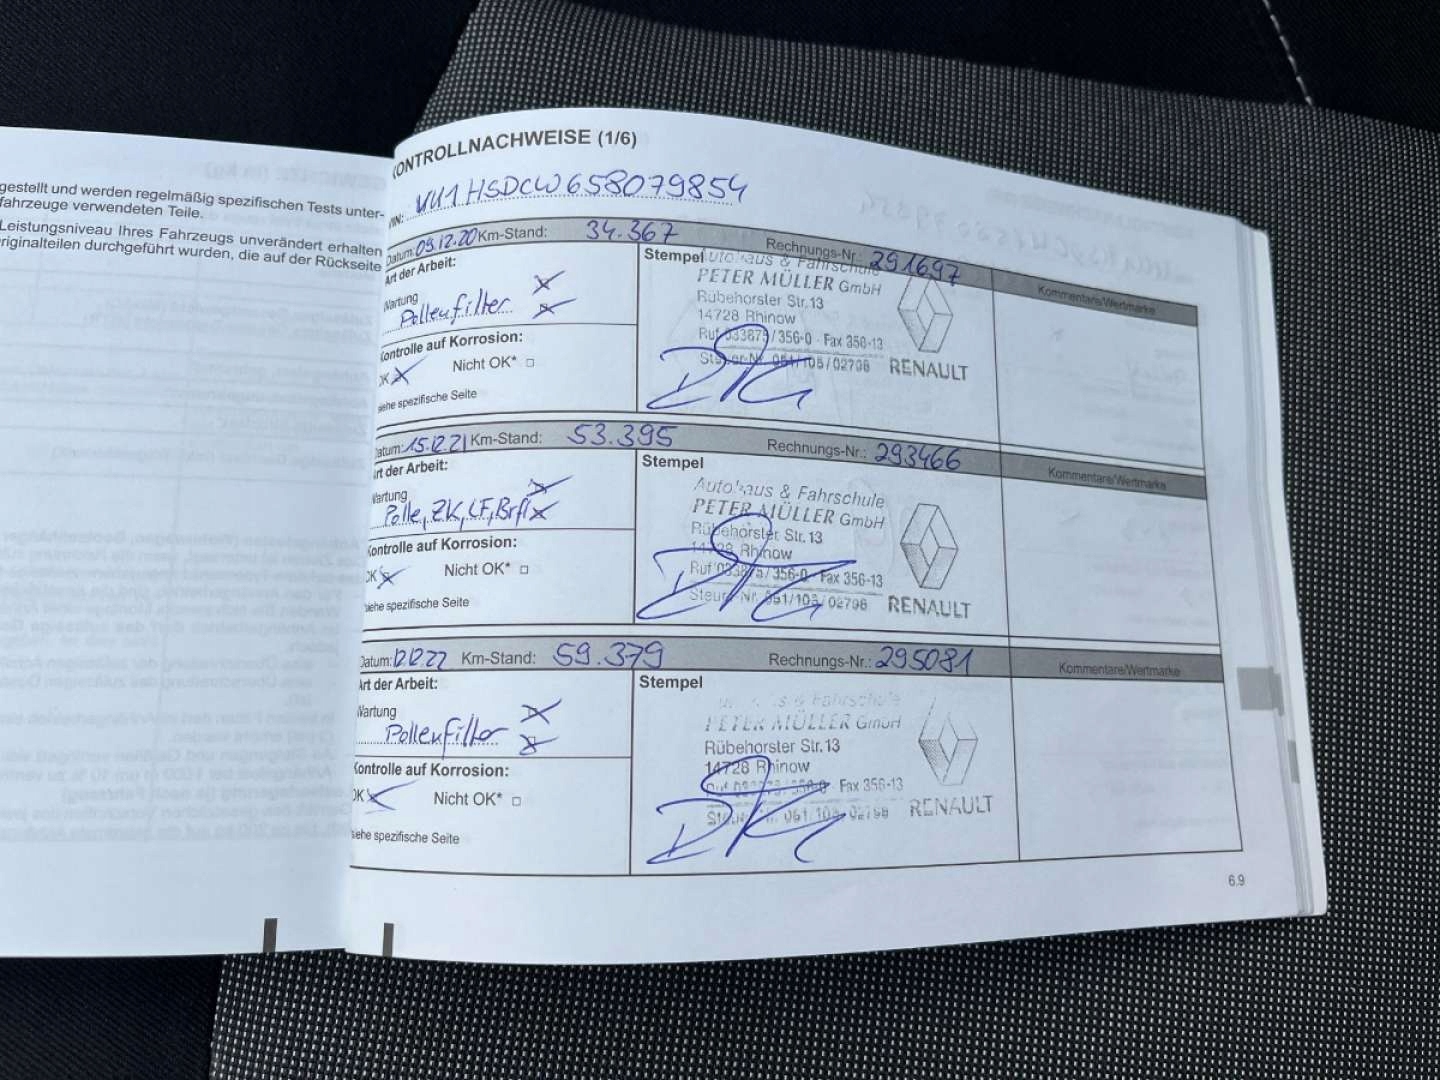 gestellt und werden regelmäßig spezifischen Tests unter-
fahrzeuge verwendeten Teile.
Leistungsniveau Ihres Fahrzeugs unverändert erhalten
riginalteilen durchgeführt wurden, die auf der Rückseite
KONTROLLNACHWEISE (1/6)
VIN: VU1HSDCW658079854
Datum: 09.12.20 Km-Stand: 34.367 Rechnungs-Nr.: 291697
Kommentare/Wertmarke
Art der Arbeit:
Wartung
Pollenfilter
Kontrolle auf Korrosion:
OK Nicht OK*
siehe spezifische Seite
Stempel
Autohaus & Fahrschule
PETER MÜLLER GmbH
Rübehorster Str.13
14728 Rhinow
Ruf 033875/356-0 · Fax 356-13
Steuer-Nr. 051/108/02798
RENAULT
Datum: 15.12.21 Km-Stand: 53.395 Rechnungs-Nr.: 293466
Kommentare/Wertmarke
Art der Arbeit:
Wartung
Polle, ZK, LF, Brfl
Kontrolle auf Korrosion:
OK Nicht OK*
siehe spezifische Seite
Stempel
Autohaus & Fahrschule
PETER MÜLLER GmbH
Rübehorster Str.13
14728 Rhinow
Ruf 033875/356-0 · Fax 356-13
Steuer-Nr. 051/108/02798
RENAULT
Datum: 12.12.22 Km-Stand: 59.379 Rechnungs-Nr.: 295081
Kommentare/Wertmarke
Art der Arbeit:
Wartung
Pollenfilter
Kontrolle auf Korrosion:
OK Nicht OK*
siehe spezifische Seite
Stempel
& Fahrschule
PETER MÜLLER GmbH
Rübehorster Str.13
14728 Rhinow
Ruf 033875/356-0 · Fax 356-13
051/108/02798
RENAULT
6.9